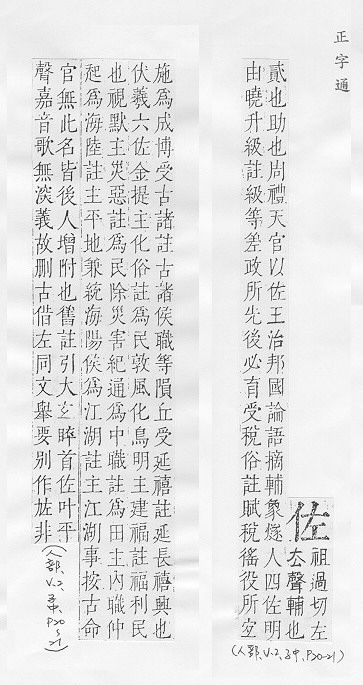 正字通
佐
祖過切左
去聲輔也
貳也助也周禮天官以佐王治邦國論語摘輔象燧人四佐明
由曉升級註級等差政所先後必育受稅俗註賦稅徭役所宜
(人部, V.2, 子中, P20-21)
施為成博受古諸註古諸侯職等隕丘受延禧註延長禧興也
伏羲六佐金提主化俗註為民敦風化鳥明主建福註福利民
也視默主災惡註為民除災害紀通為中職註為田主內職仲
起為海陸註主平地兼統海陽侯為江湖註主江湖事按古命
官無此名皆後人增附也舊註引大玄睟首佐叶平
聲嘉音歌無深義故刪古借左同文舉要別作非
(人部, V.2, P20-21)